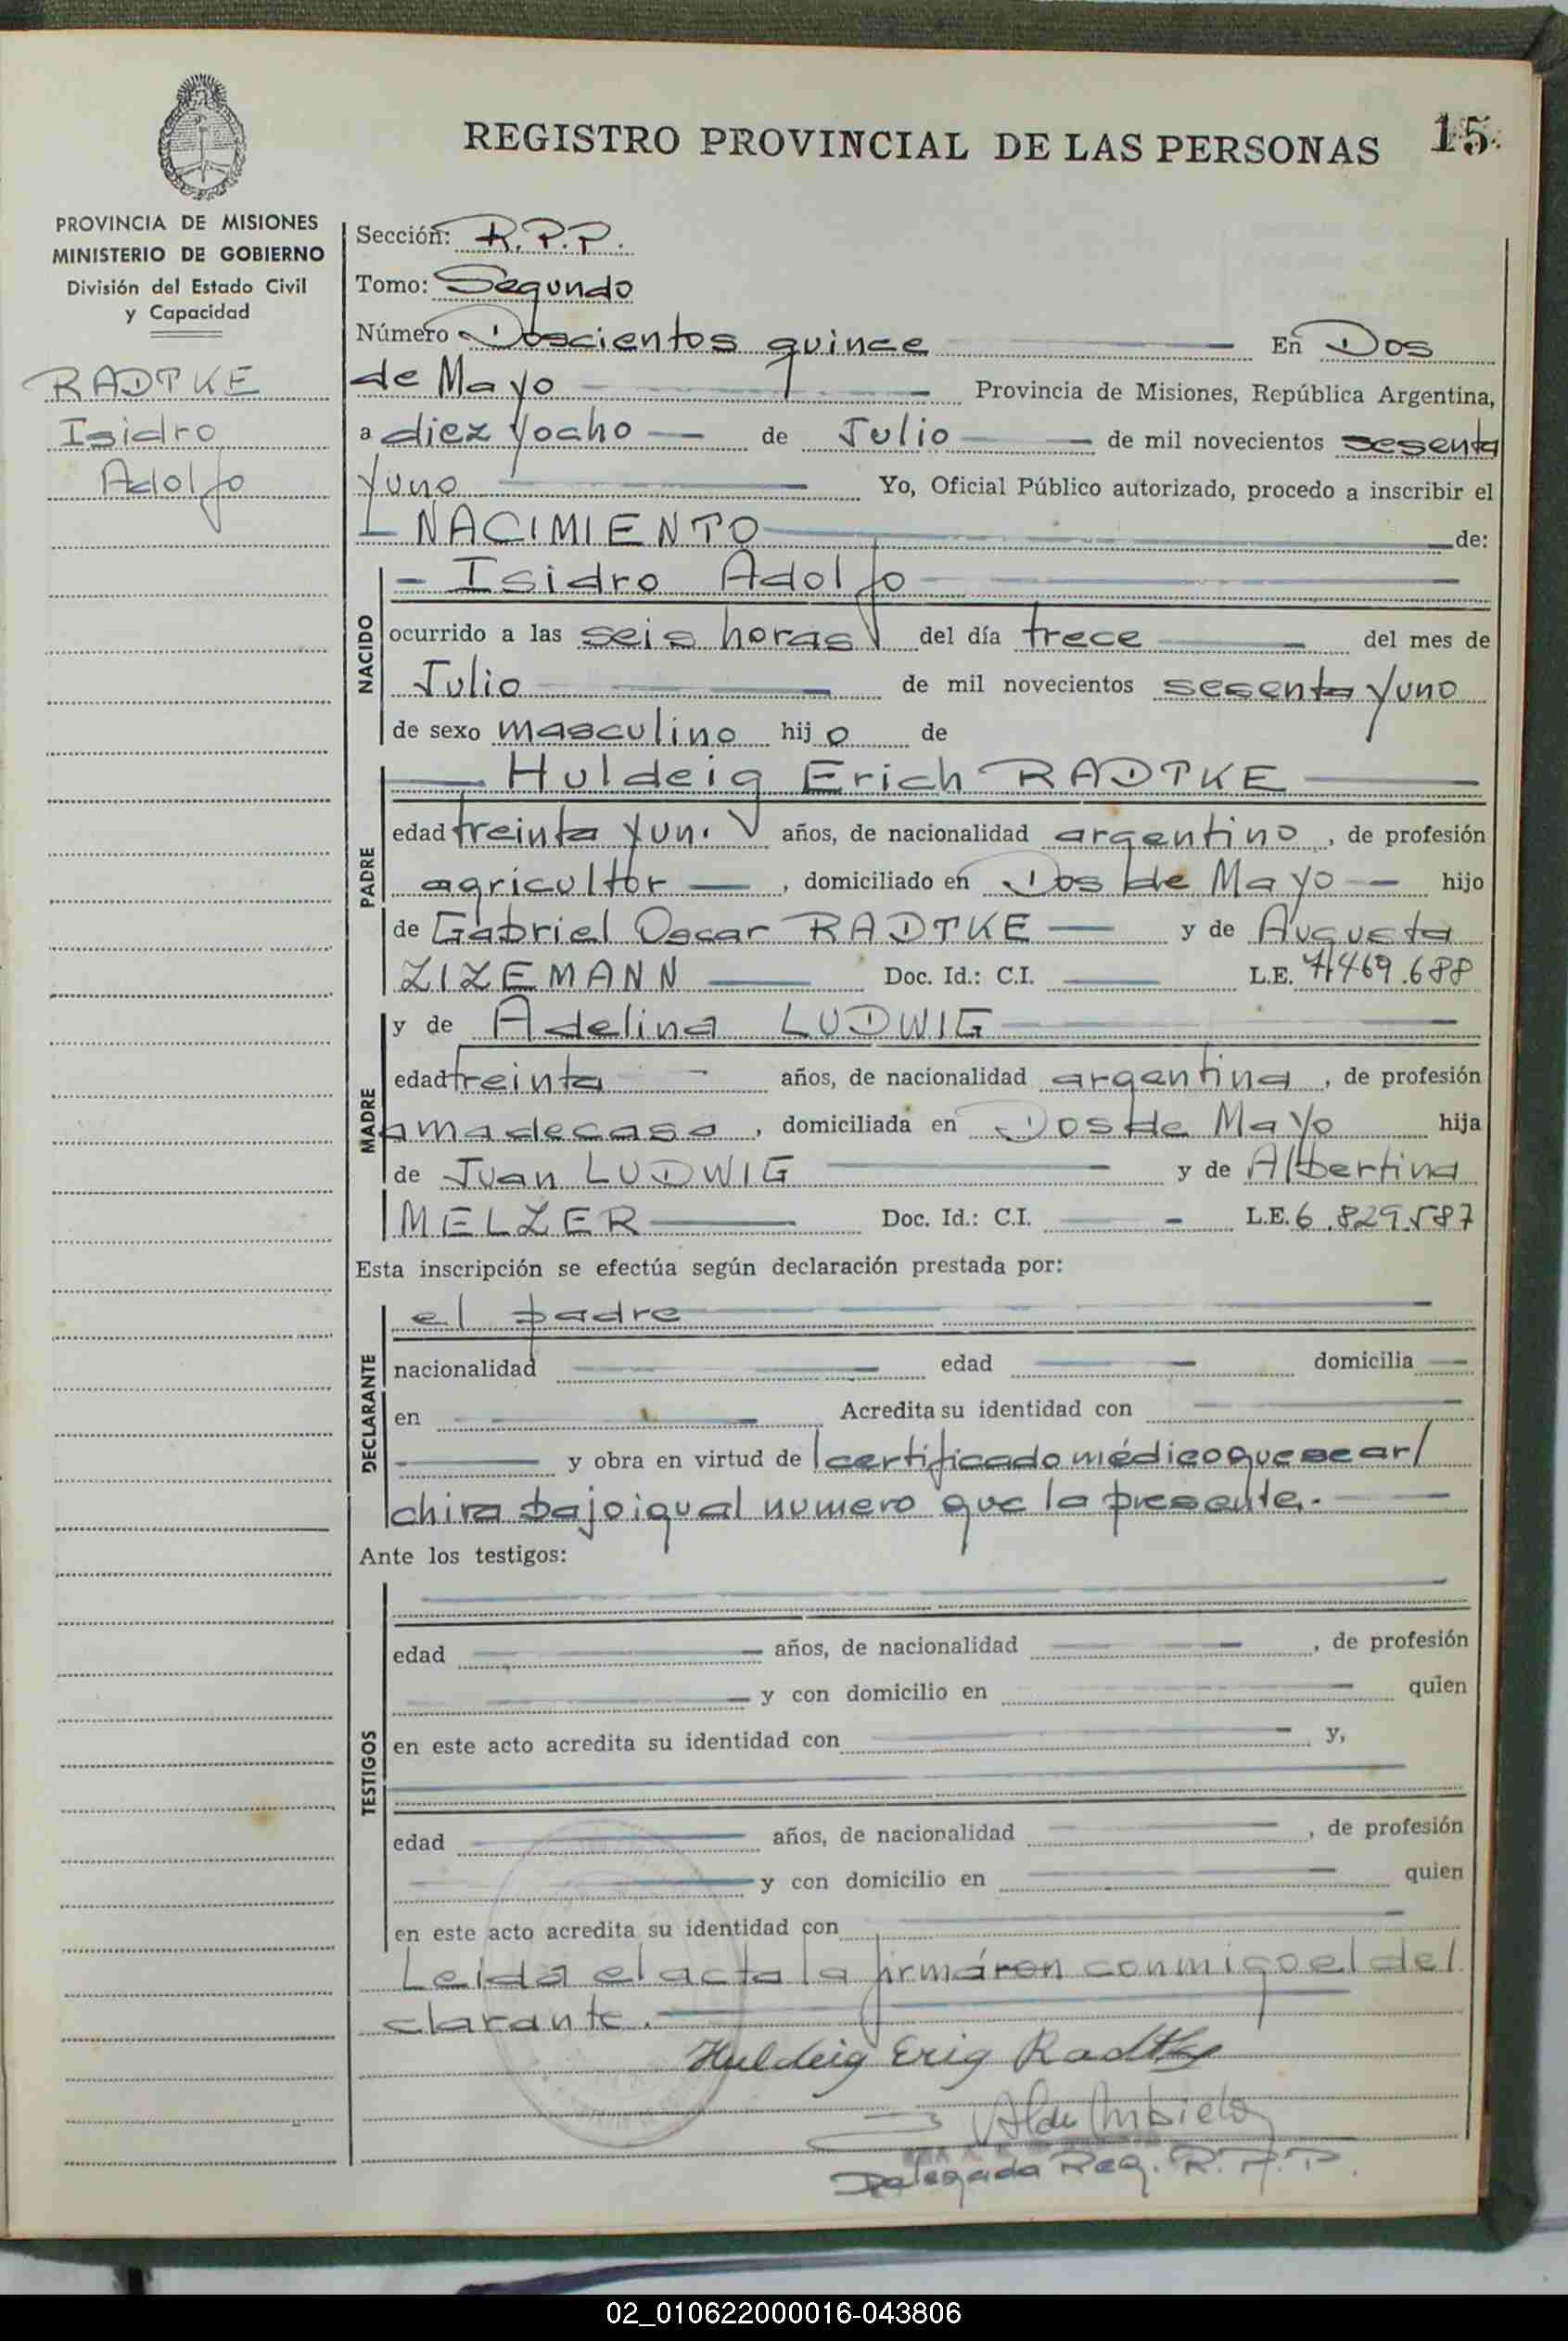 REGISTRO PROVINCIAL DE LAS PERSONAS 15
PROVINCIA DE MISIONES
MINISTERIO DE GOBIERNO
División del Estado Civil
y Capacidad
RADTKE
Isidro
Adolfo
Sección: R.P.P.
Tomo: Segundo
Número Doscientos quince En Dos
de Mayo Provincia de Misiones, República Argentina,
a diez y ocho de Julio de mil novecientos sesenta
y uno Yo, Oficial Público autorizado, procedo a inscribir el
NACIMIENTO de:
NACIDO
Isidro Adolfo
ocurrido a las seis horas del día trece del mes de
Julio de mil novecientos sesenta y uno
de sexo masculino hijo de
PADRE
Huldeig Erich RADTKE
edad treinta y un. años, de nacionalidad argentino, de profesión
agricultor, domiciliado en Dos de Mayo hijo
de Gabriel Oscar RADTKE y de Augusta
ZIZEMANN Doc. Id.: C.I. L.E. 7.469.688
MADRE
y de Adelina LUDWIG
edad treinta años, de nacionalidad argentina, de profesión
ama de casa, domiciliada en Dos de Mayo hija
de Juan LUDWIG y de Albertina
MELZER Doc. Id.: C.I. L.E. 6.829.587
Esta inscripción se efectúa según declaración prestada por:
DECLARANTE
el padre
nacionalidad edad domicilia
en Acredita su identidad con
y obra en virtud de certificado médico que se ar/
chiva bajo igual numero que la presente.-
Ante los testigos:
TESTIGOS
edad años, de nacionalidad, de profesión
y con domicilio en quien
en este acto acredita su identidad con y,
edad años, de nacionalidad, de profesión
y con domicilio en quien
en este acto acredita su identidad con
Leida el acta la firmáron conmigo el del
clarante.
Huldeig Erig Radtke
Delegada Reg. R.P.P.
02_010622000016-043806